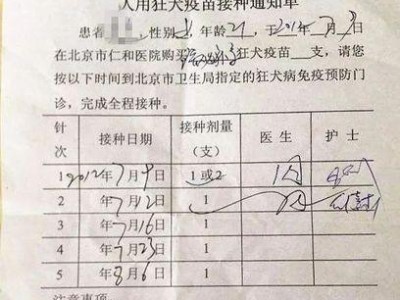 人用狂犬疫苗接种通知单
患者 ,性别 ,年龄21,于2012年7月 日
在北京市仁和医院购买 狂犬疫苗 支,请您
按以下时间到北京市卫生局指定的狂犬病免疫预防门
诊,完成全程接种。
针次 接种日期 接种剂量(支) 医生 护士
1 2012年7月9日 1或2
2 年7月12日 1
3 年7月16日 1
4 年7月23日 1
5 年8月6日 1
注意事项